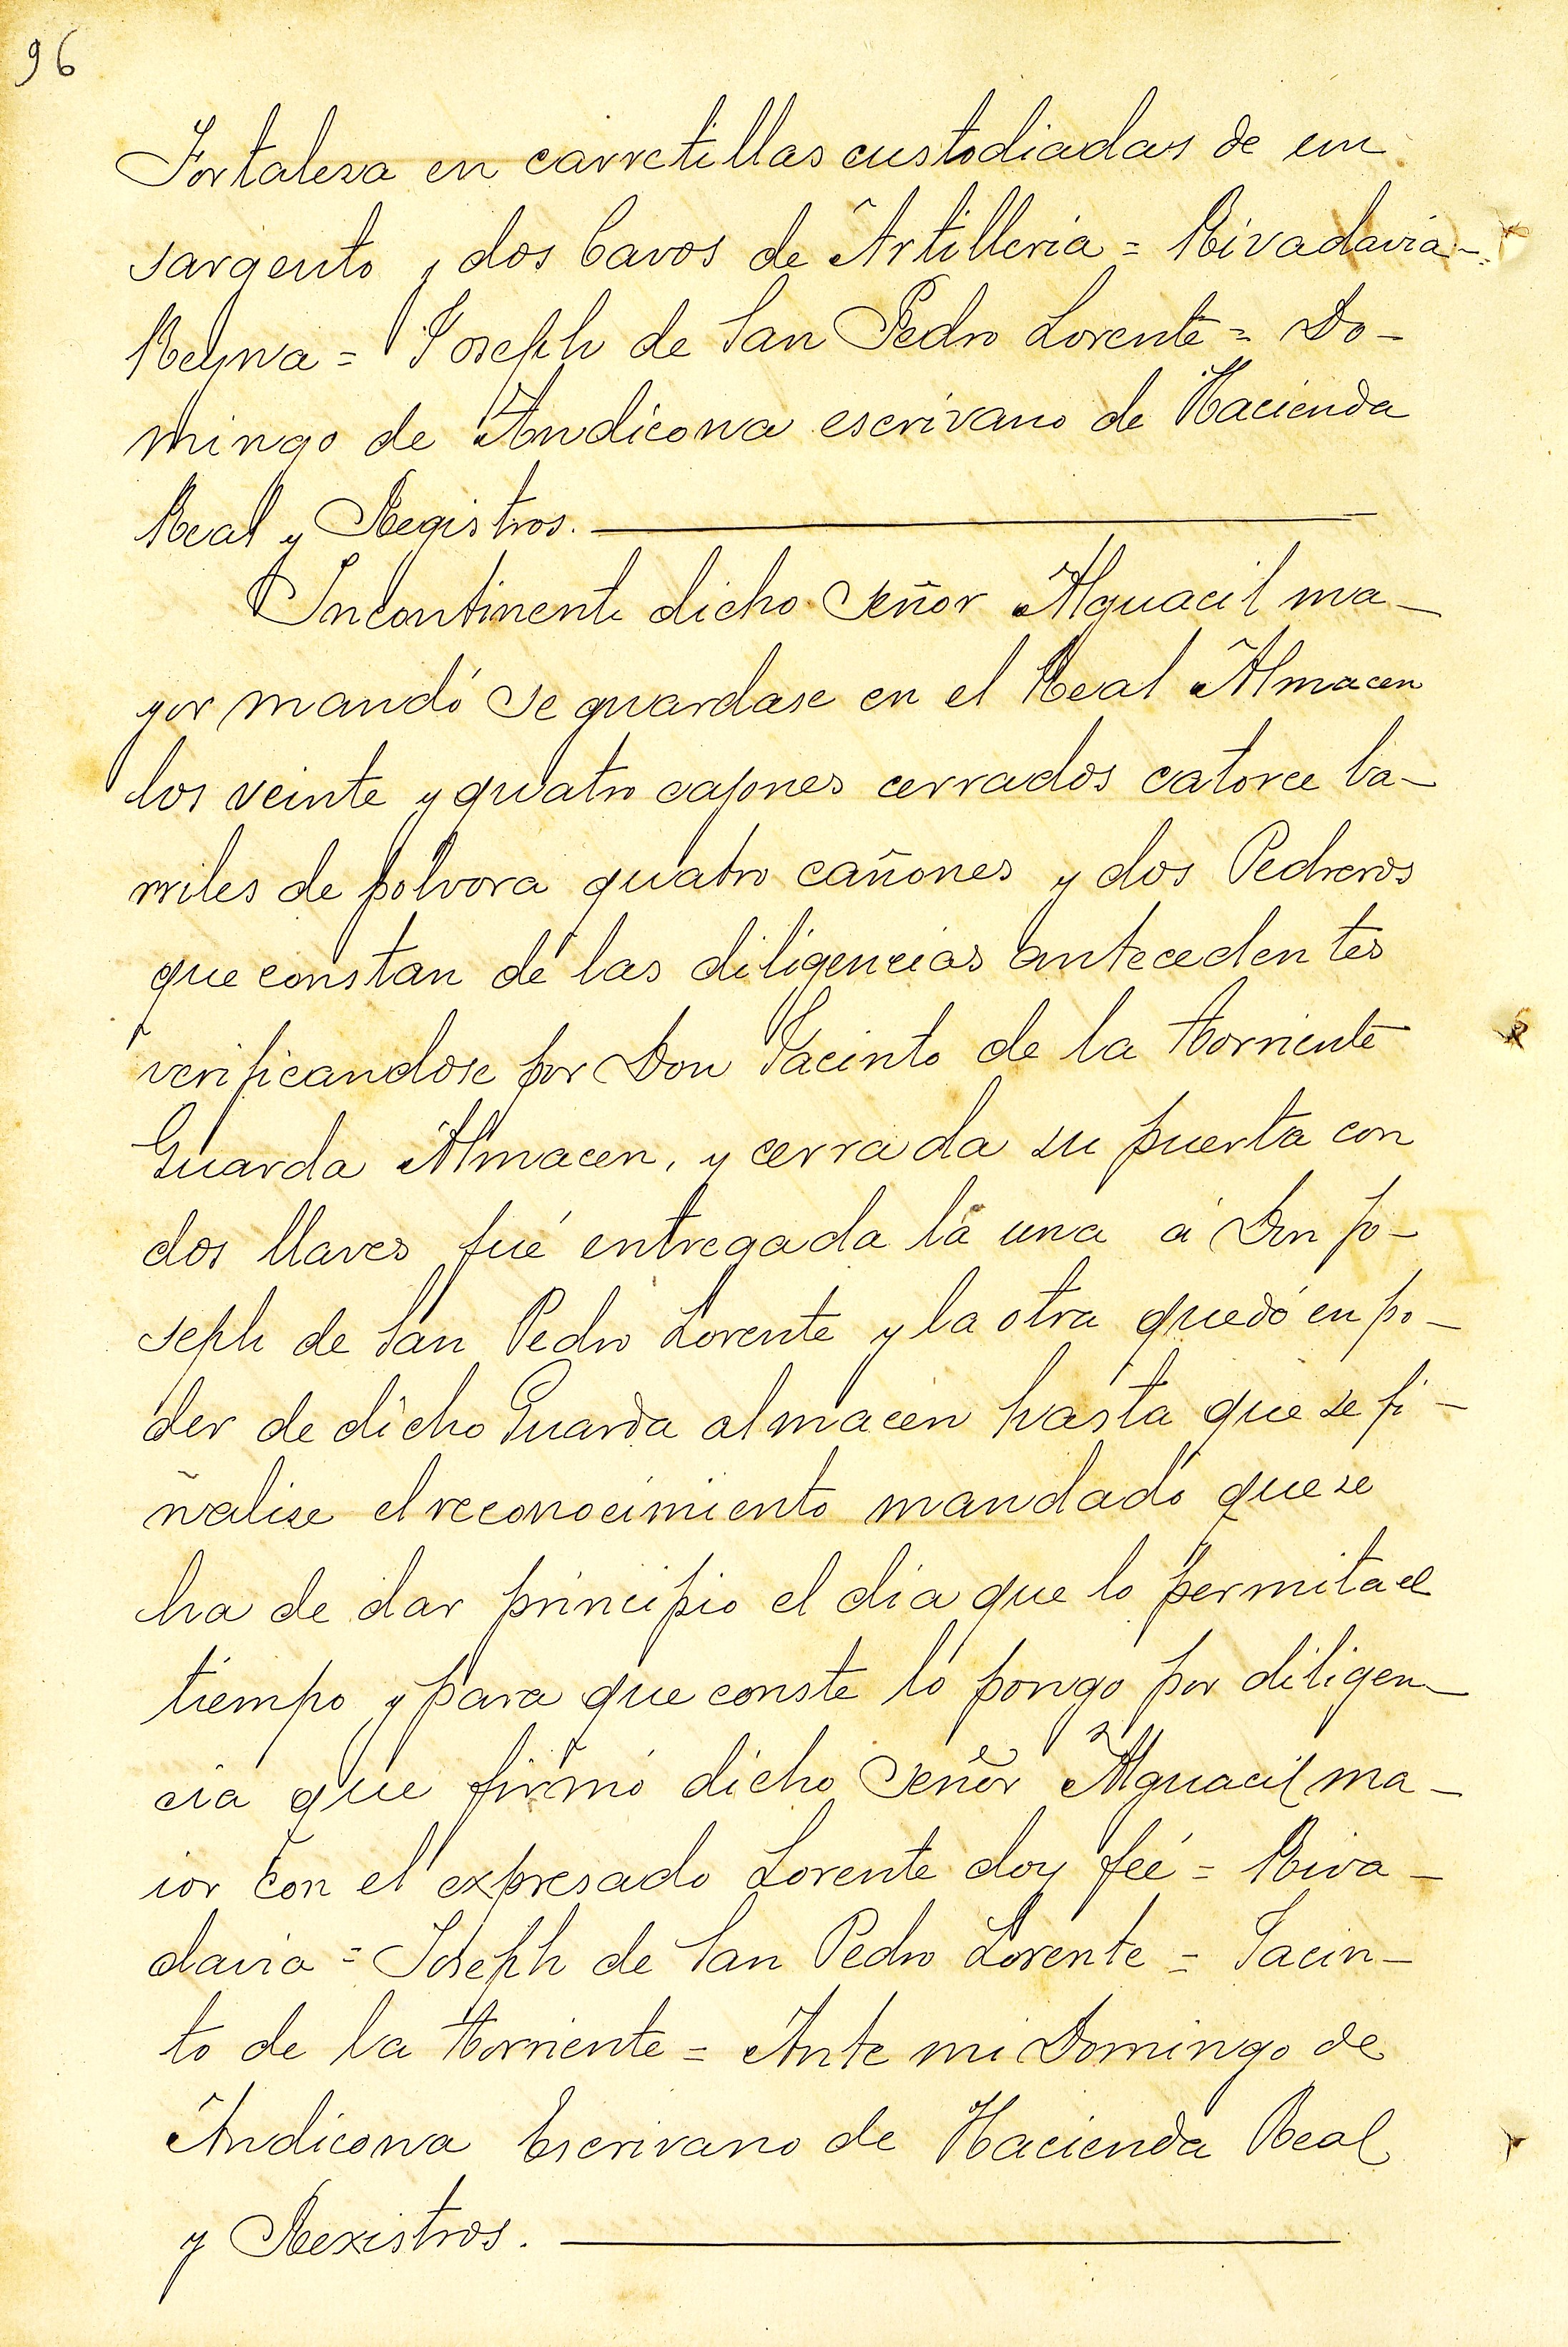 96
Fortalesa en carretillas custodiadas de un
sargento y dos Cavos de Artilleria = Rivadavia =
Reyna = Joseph de San Pedro Lorente = Do-
mingo de Andicona escrivano de Hacienda
Real y Registros.
Incontinenti dicho señor Alguacil ma-
yor mandó se guardase en el Real Almacen
los veinte y quatro cajones cerrados catorce ba-
rriles de pólvora quatro cañones y dos Pedreros
que constan de las diligencias antecedentes
verificandose por Don Jacinto de la Horriente
Guarda Almacen, y cerrada su puerta con
dos llaves fué entregada la una á Don Jo-
seph de San Pedro Lorente y la otra quedó en po-
der de dicho Guarda almacen hasta que se fi-
nalise el reconocimiento mandado que se
ha de dar principio el dia que lo permita el
tiempo y para que conste lo pongo por diligen-
cia que firmó dicho señor Alguacil ma-
ior con el expresado Lorente doy feé = Riva-
davia = Joseph de San Pedro Lorente = Jacin-
to de la Horriente = Ante mi Domingo de
Andicona Escrivano de Hacienda Real
y Rexistros.